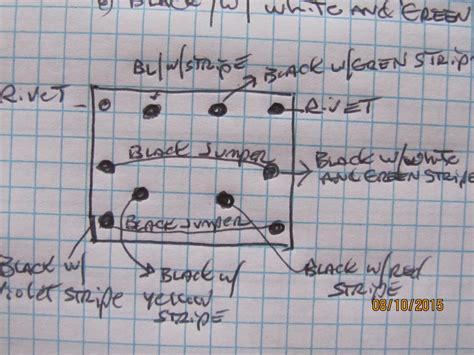 B) BLACK/W/ WHITE AND GREEN
BL/W/STRIPE
BLACK W/GREN STRIP
RIVET
RIVET
BLACK JUMPER
BLACK W/WHITE
AND GREEN STRIPE
BLACK JUMPER
BLACK W/
VIOLET STRIPE
BLACK W/
YELLOW
STRIPE
BLACK W/RED
STRIPE
08/10/2015